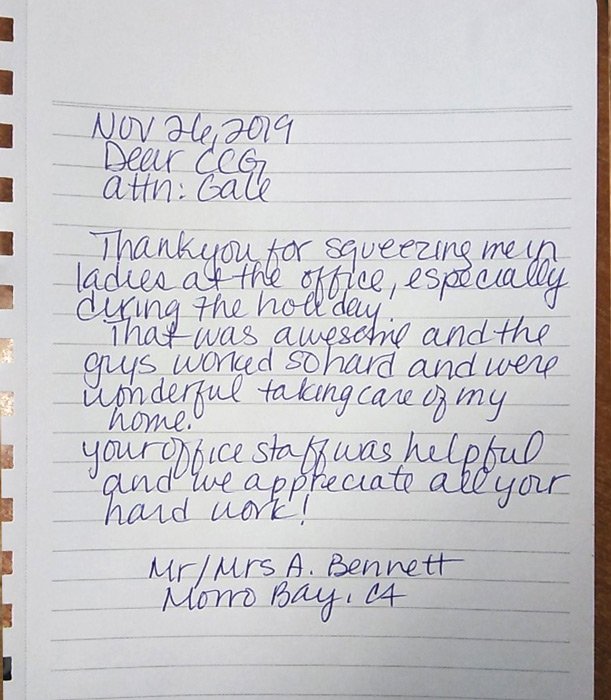 Nov 26, 2019
Dear CCG
attn: Gale
Thank you for squeezing me in
ladies at the office, especially
during the holiday.
That was awesome and the
guys worked so hard and were
wonderful taking care of my
home.
your office staff was helpful
and we appreciate all your
hard work!
Mr/Mrs A. Bennett
Morro Bay, CA